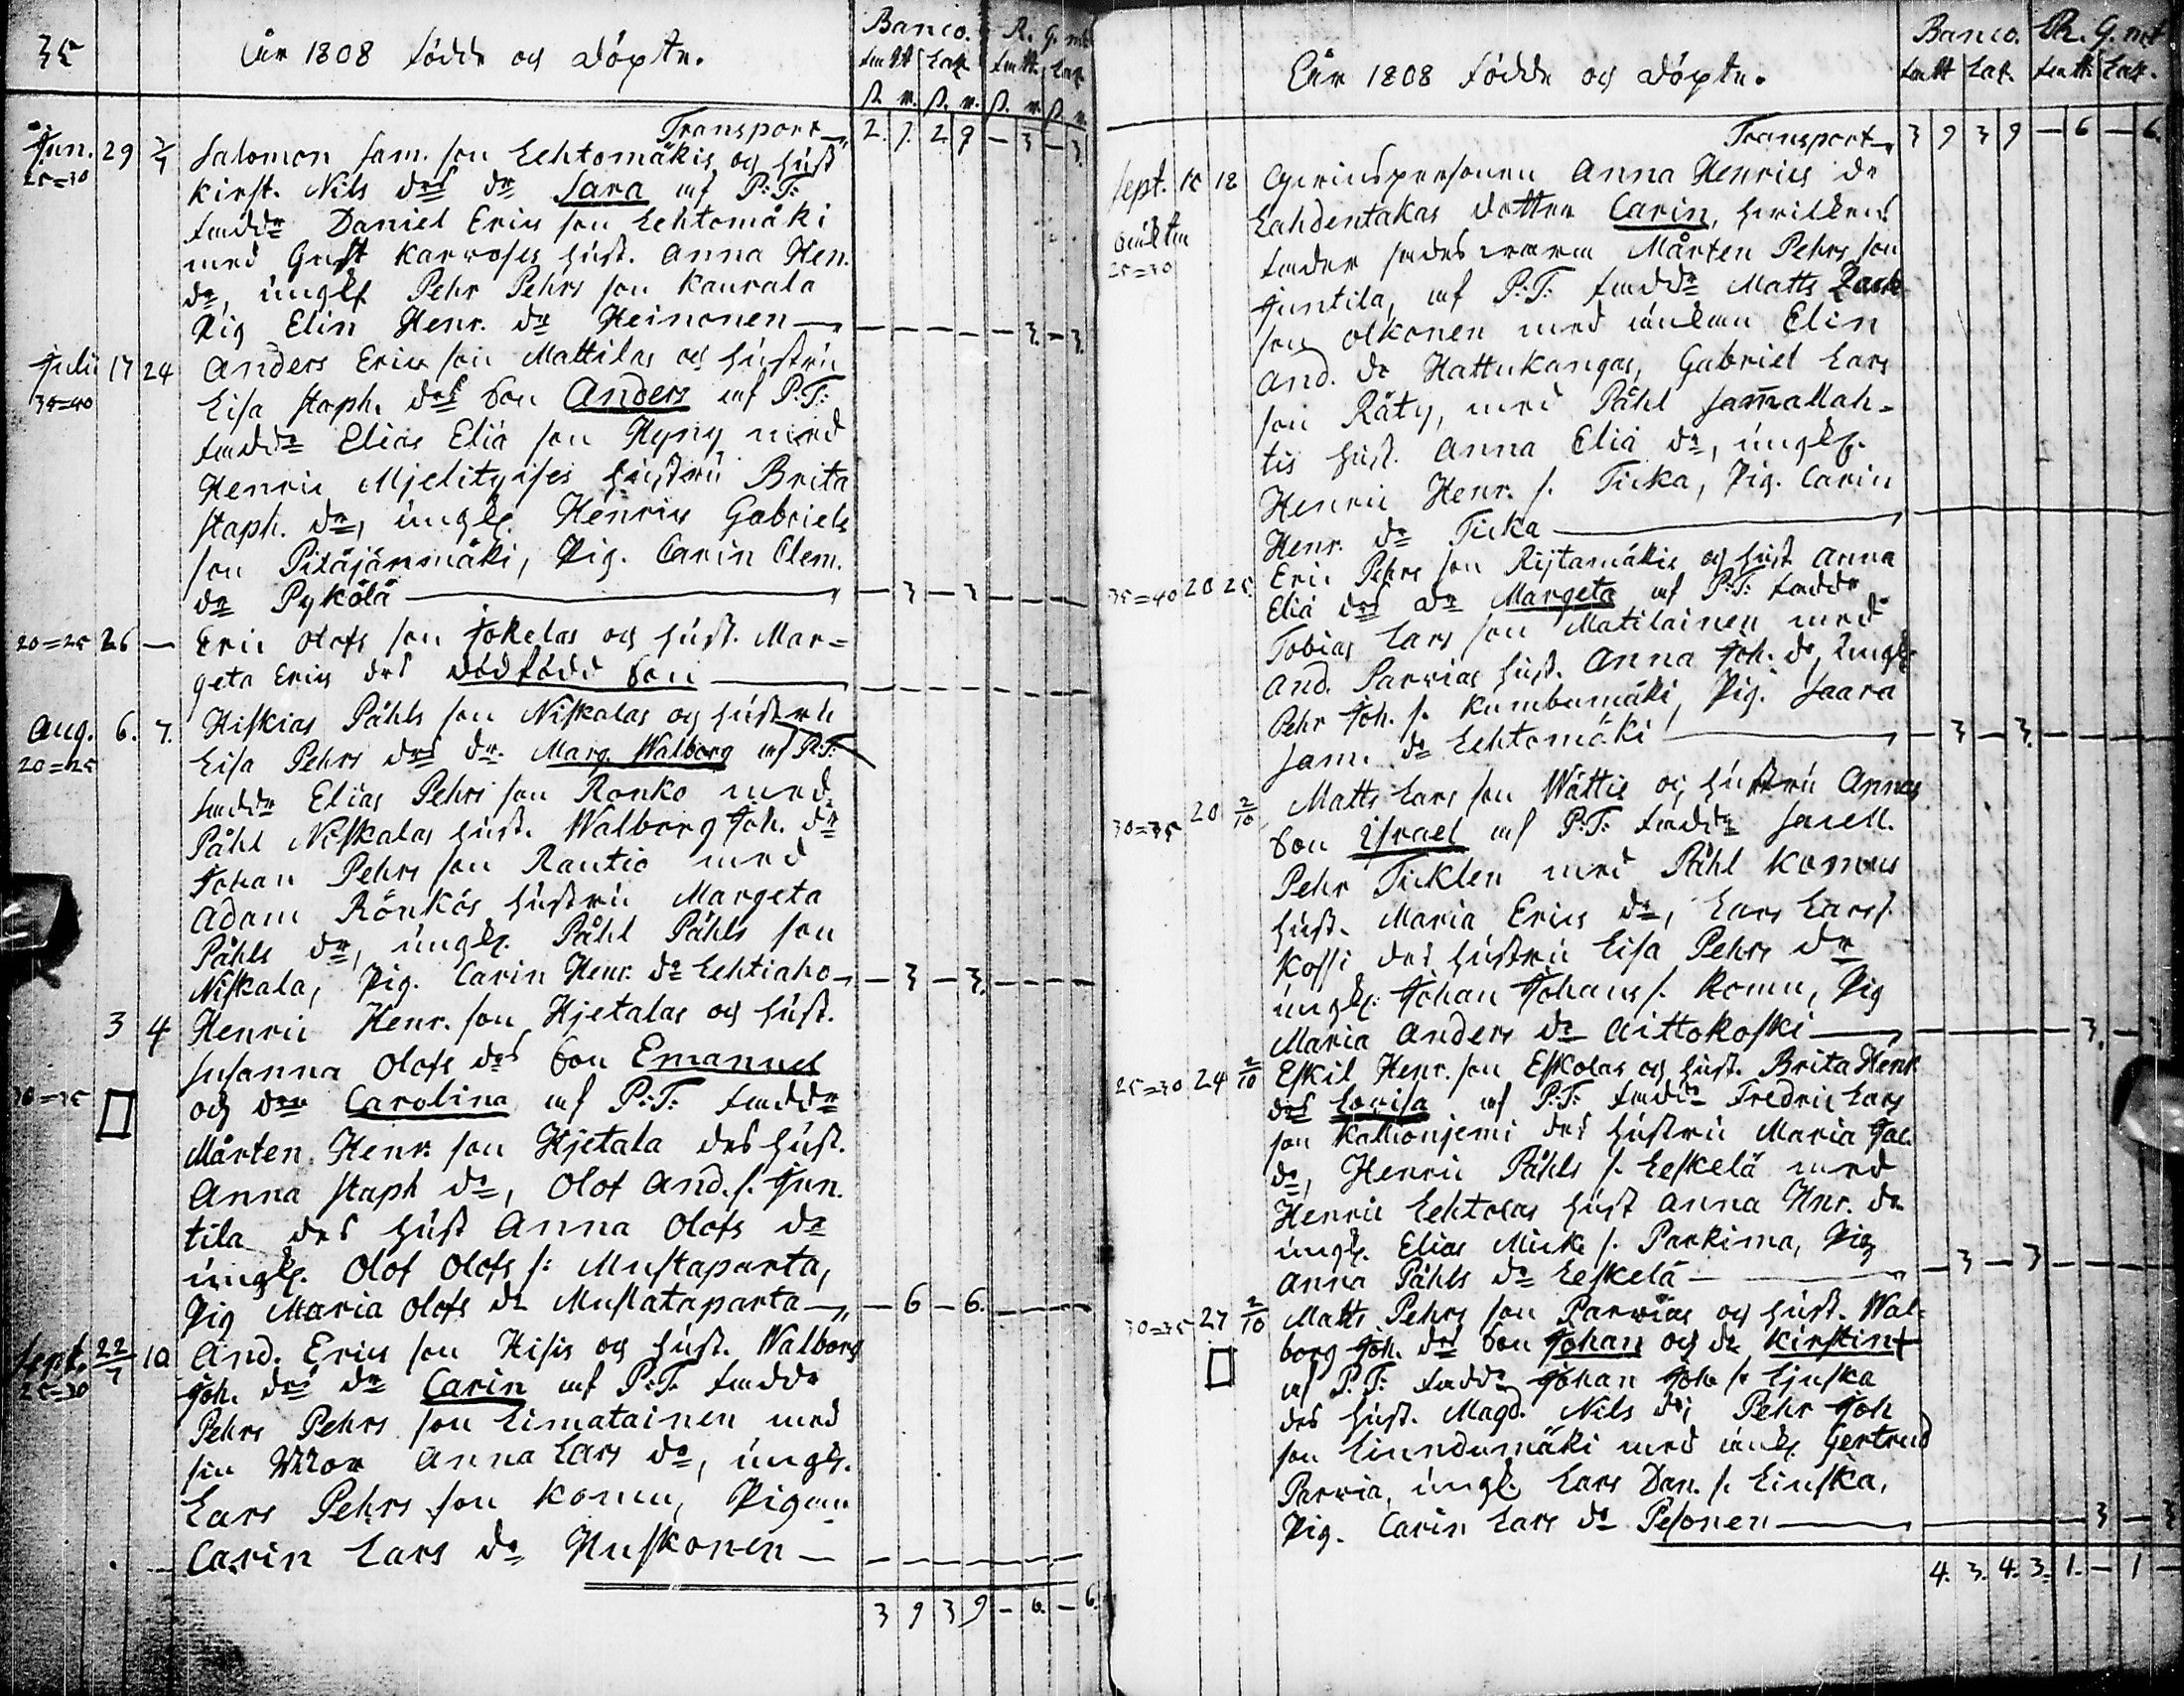 35
År 1808 födde og döpte.
Banco. R. G. mt
Transport 2. 7. 2 9 — 3 — 3.
Jun. 29 3/7 Salomon Sam. son Lehtomäkis og hust
25=30 Kirst. Nils des dr Sara af P:T:
faddr Daniel Erics son Lehtomäki
med Gust Karvoses hust. Anna Hen.
dr, ungk Pehr Pehrs son Kaurala
Pig Elin Henr. dr Heinonen — — — — — 3. — 3.
Juli 17 24 Anders Erics son Mattilas og hustru
35=40 Lisa Staph. des Son Anders af P:T:
faddr Elias Eliä son Hyny med
Henric Mjelityises hustru Brita
Staph. dr, ungk. Henrics Gabriels
son Pitäjänmäki, Pig. Carin Clem.
dr Pyköla — 3 — 3 — — — —
20=25 26 — Eric Olofs son Jokelas og hust. Mar=
geta Erics des dödfödd Son — — — — — — — —
Aug. 6. 7. Hiskias Påhls son Niskalas og hustru
20=25 Lisa Pehrs des dr. Marg. Walborg af P.T.
faddr Elias Pehrs son Ronko med
Påhl Niskalas hust. Walborg Joh. dr
Johan Pehrs son Rautio med
Adam Rönkös hustru Margeta
Påhls dr, ungk. Påhl Påhls son
Niskala, Pig. Carin Henr. dr Lehtiaho — 3 — 3. — — — —
3 4 Henric Henr. son Hjetalas og hust.
Susanna Olofs des Son Emanuel
30=35 og dr Carolina af P:T: faddr
Mårten Henr. son Hjetala des hust.
Anna Staph dr, Olof And. s. Jun.
tila des hust Anna Olofs dr
ungk. Olof Olofs s: Mustaparta,
Pig Maria Olofs dr Mustataparta — 6 — 6. — — — —
Sept. 22/7 10 And. Erics son Hisis og hust. Walborg
25=30 Joh. des dr Carin af P:T. faddr
Pehrs Pehrs son Limatainen med
sin Mor Anna Lars dr, ungk.
Lars Pehrs son Komu, Pigan
Carin Lars dr Huskonen — — — — — — —
3 9 3 9 — 6. — 6.
År 1808 födde og döpte.
Banco. R. G. mt
Transport 3 9 3 9 — 6 — 6.
Sept. 15 18 Qvinspersonen Anna Henrics dr
25=30 Lahdentakas dotter Carin, hvilkens
fader sades vara Mårten Pehrs son
Juntila, af P:T: faddr Matts Zach
son Olkonen med enkan Elin
And. dr Hattukangas, Gabriel Lars
son Räty, med Påhl Jamallah=
tis hust. Anna Eliä dr, ungk.
Henric Henr. s. Ticka, Pig. Carin
Henr. dr Ticka
35=40 20 25. Eric Pehrs son Rijtamäkis og hust Anna
Eliä des dr Margeta af P:T: faddr
Tobias Lars son Matilainen med
And. Parvias hust. Anna Joh. dr, ungk
Pehr Joh. s. Kumbumäki, Pig. Saara
Sam. dr Lehtomäki — 3 — 3. — — — —
30=35 20 2/10 Matts Lars son Wättis og hustru Annas
Son Israel af P:T: faddr
Pehr Ticklen med Påhl Komus
hust. Maria Erics dr, Lars Lars s.
Kossi des hustru Lisa Pehrs dr
ungk. Johan Johans s. Komu, Pig
Maria Anders dr Aittokoski — — — — 3. —
25=30 24 2/10 Eskil Henr. son Eskolas og hust. Brita Henr
des Lovisa af P:T: faddr Fredric Lars
son Kallionjemi des hustru Maria Jac.
dr, Henric Påhls s. Leskelä med
Henric Lehtolas hust Anna Hnr. dr
ungk. Elias Mick s. Parkima, Pig
Anna Påhls dr Leskelä — 3 — 3 — — —
30=35 27 2/10 Matts Pehrs son Parvias og hust. Wal=
borg Joh. des Son Johan og dr Kirstin
af P:T: faddr Johan Joh s. Ljuska
des hust. Magd. Nils dr, Pehr Joh
son Linndumäki med enk. Gertrud
Parvia, ungk. Lars Dan. s. Liuska,
Pig. Carin Lars dr Pesonen — 3 — 3
4. 3. 4. 3. 1. — 1 —